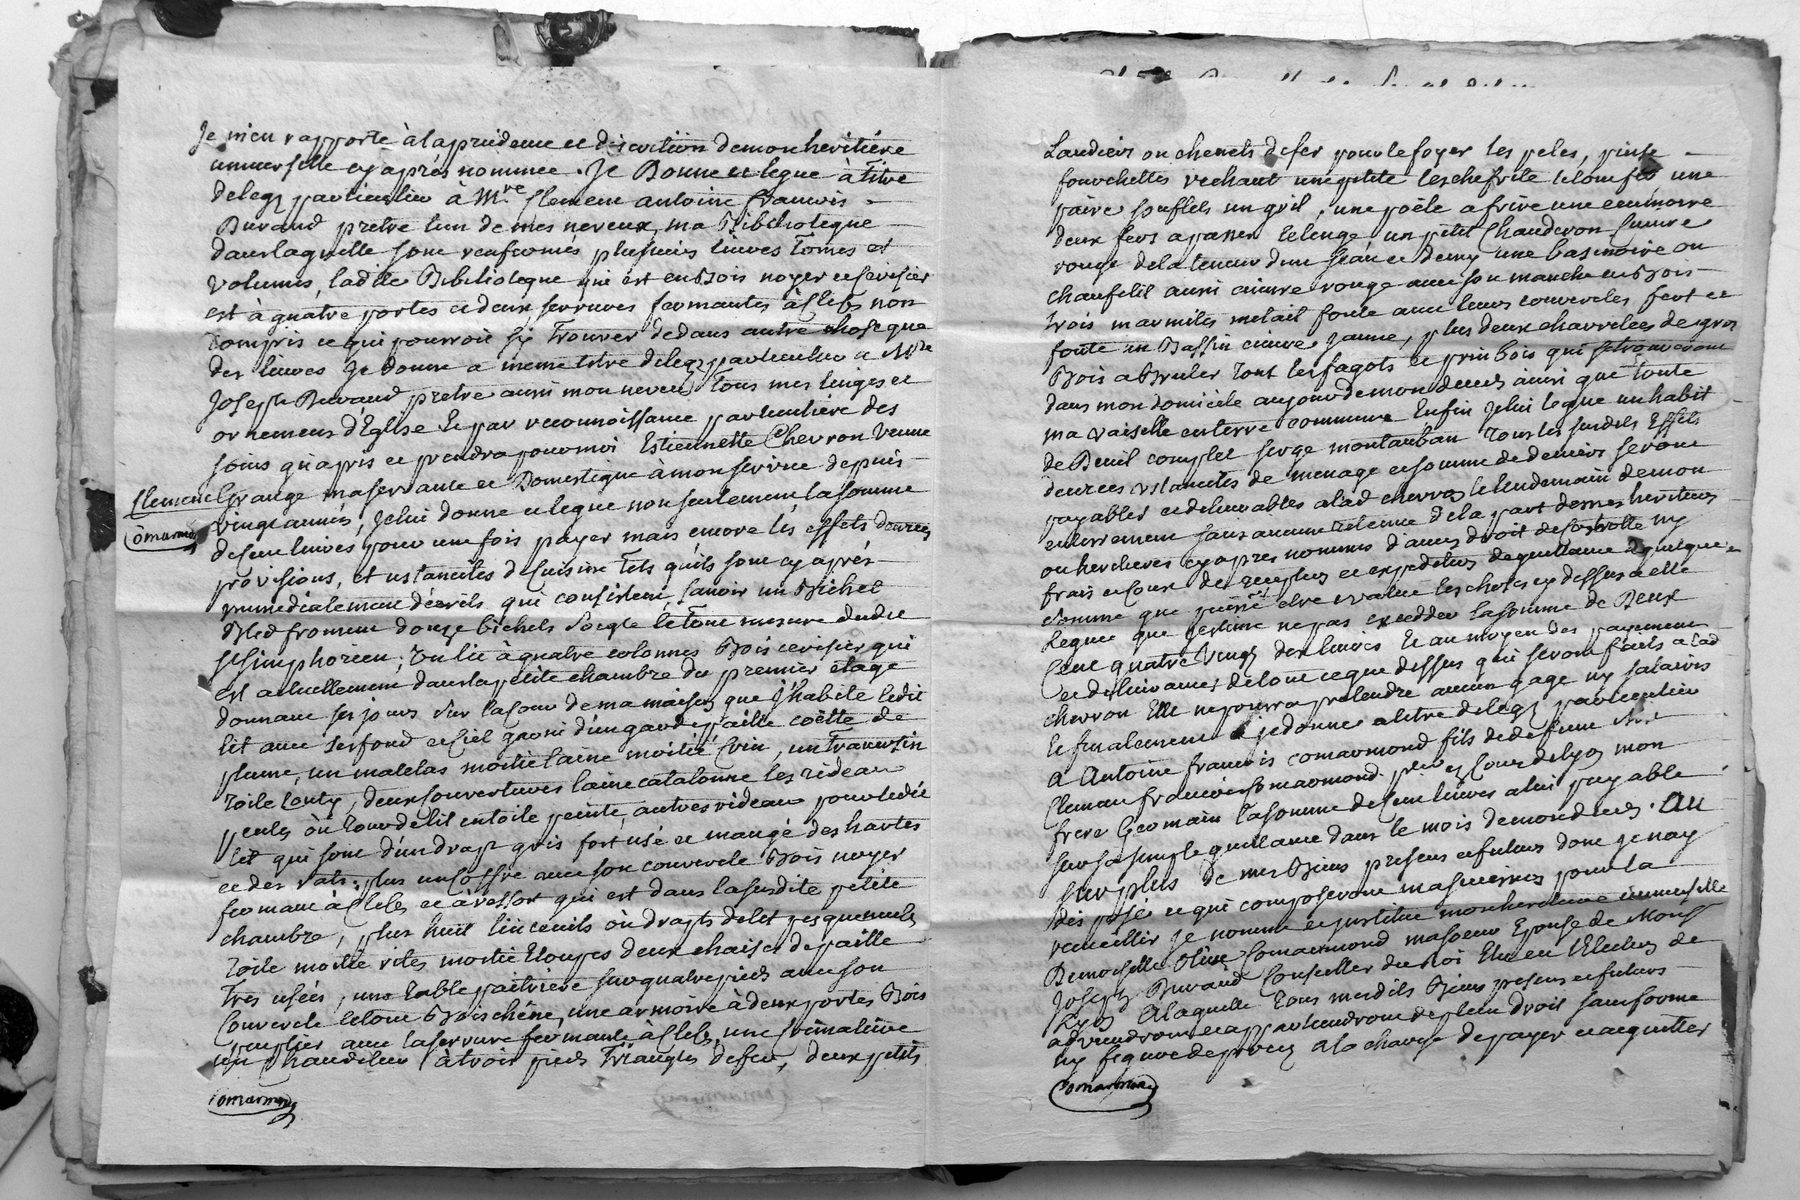 Je m'en rapporte à la prudence et discretiion de mon heritiére
universelle cy aprés nommeé. Je Donne et legue à titre
de legz particulier à Mre Clement antoine francois
Buraud pretre l'un de mes neveux, ma Bibliotegue
dans laquelle sont renfermés plusieurs livres tomes et
volumes, ladte Bibeliotegue qui est en Bois noyer et cerisier
est à quatre portes et deux serrures fermantes à clefs non
compris ce qui pourroit sy trouver dedans autre chose que
des livres Je donne a meme titre de legz particulier a Mre
Joseph Buraud pretre aussi mon neveu tous mes linges et
ornemens d'Eglise Et par reconnoissance particuliére des
soins qu'a pris et prendra pour moi Estiennette Chevron veuve
Clement Grange ma servante et Domestique à mon service depuis
vingt années, je lui donne et legue non seulement la somme
Comarmond
de cent livres pour une fois payer mais encore les effets denrées
provisions, et ustanciles de cuisine tels qu'ils sont cy aprés
immédiatement décrits qui consistent savoir un Bichet
Bled froment douze bichets seigle le tout mesure dudit
St Simphorien; un lit à quatre colonnes Bois cerisier qui
est actuellement dans la petite chambre du premier étage
donnant ses jours sur la cour de ma maison que j'habite ledit
lit avec ses fond et ciel garni d'un garde paille coëtte de
plume, un matelas moitié laine moitié crin, un traversin
toile couty, deux couvertures laine catalonne les rideau
pentes où tour de lit en toile peinte, autres rideau pour ledit
lit qui sont d'un drap gris fort usé et mangé des hartes
et des rats; plus un coffre avec son couvercle Bois noyer
fermant à clefs et à ressor qui est dans la susdite petite
chambre, plus huit linceuils où draps de lit presque neufs
toile moitié rites moitié Etoupes deux chaises de paille
tres usées, une table paitriére sur quatre pieds avec son
Couvercle le tout Bois chéne, une armoire à deux portes Bois
peuplier avec la serrure fermante à clefs, une Crémaliére
un Chandelier à trois pieds triangles de fer, deux petits
Comarmond
Landiers ou chenets de fer pour le foyer les peles, pinse
fourchettes rechaut une petite leschefrite le tout fer, une
paire souflets un gril, une poële a frire une ecumoire
deux fers a passer le lenge un petit Chauderon cuivre
rouge de la teneur d'un seau et demy une bassinoire ou
chaufelit aussi cuivre rouge avec son manche en Bois
trois marmites metail fonte avec leurs couvercles fert et
fonte un Bassin cuivre jaune, plus deux charretées de gros
Bois a Bruler tous les fagots et prin bois qui se trouveront
dans mon domicile au jour de mon decés ainsi que toute
ma vaiselle en terre commune Enfin je lui legue un habit
de Deuil complet serge montauban tous les susdits Effets
denrées ustanciles de menage et somme de deniers seront
payables et delivrables a lad chevron le lendemain de mon
enterrement sans aucune retenue de la part de mes heritiers
ou herctieres cy apres nommés d'aucun droit de Controlle ny
frais et cout de receptes et expedition de quittance a quelque
somme que puisse etre evalué les choses cy dessus a elle
leguée que j'estime ne pas exedder la somme de Deux
Cent quatre vingt dix livres Et au moyen des payement
et delivrances de tout ce que dessus qui seront faits a lad
chevron Elle ne pourra pretendre aucun gage ny salaires
Et finalement je donne a titre de legz particulier
a Antoine francois comarmond fils de defunt Mre
Clement francois Comarmond mon
frere Germain la somme de cent livres a lui payable
sur sa simple quittance dans le mois de mon decés. Au
surplus de mes Biens presens et futurs dont je nay
disposé et qui composeront ma succession pour la
recueillir je nomme et institue mon heritiere universelle
Demoiselle Olive Comarmond ma soeur Epouse de Monsr
Joseph Buraud Conseiller du Roi Elu en l'Election de
Lyon A laquelle tous mesdits Biens presens et futurs
adviendront et appartiendront de plein droit sans forme
ny figure de procès a la charge de payer et acquitter
Comarmond